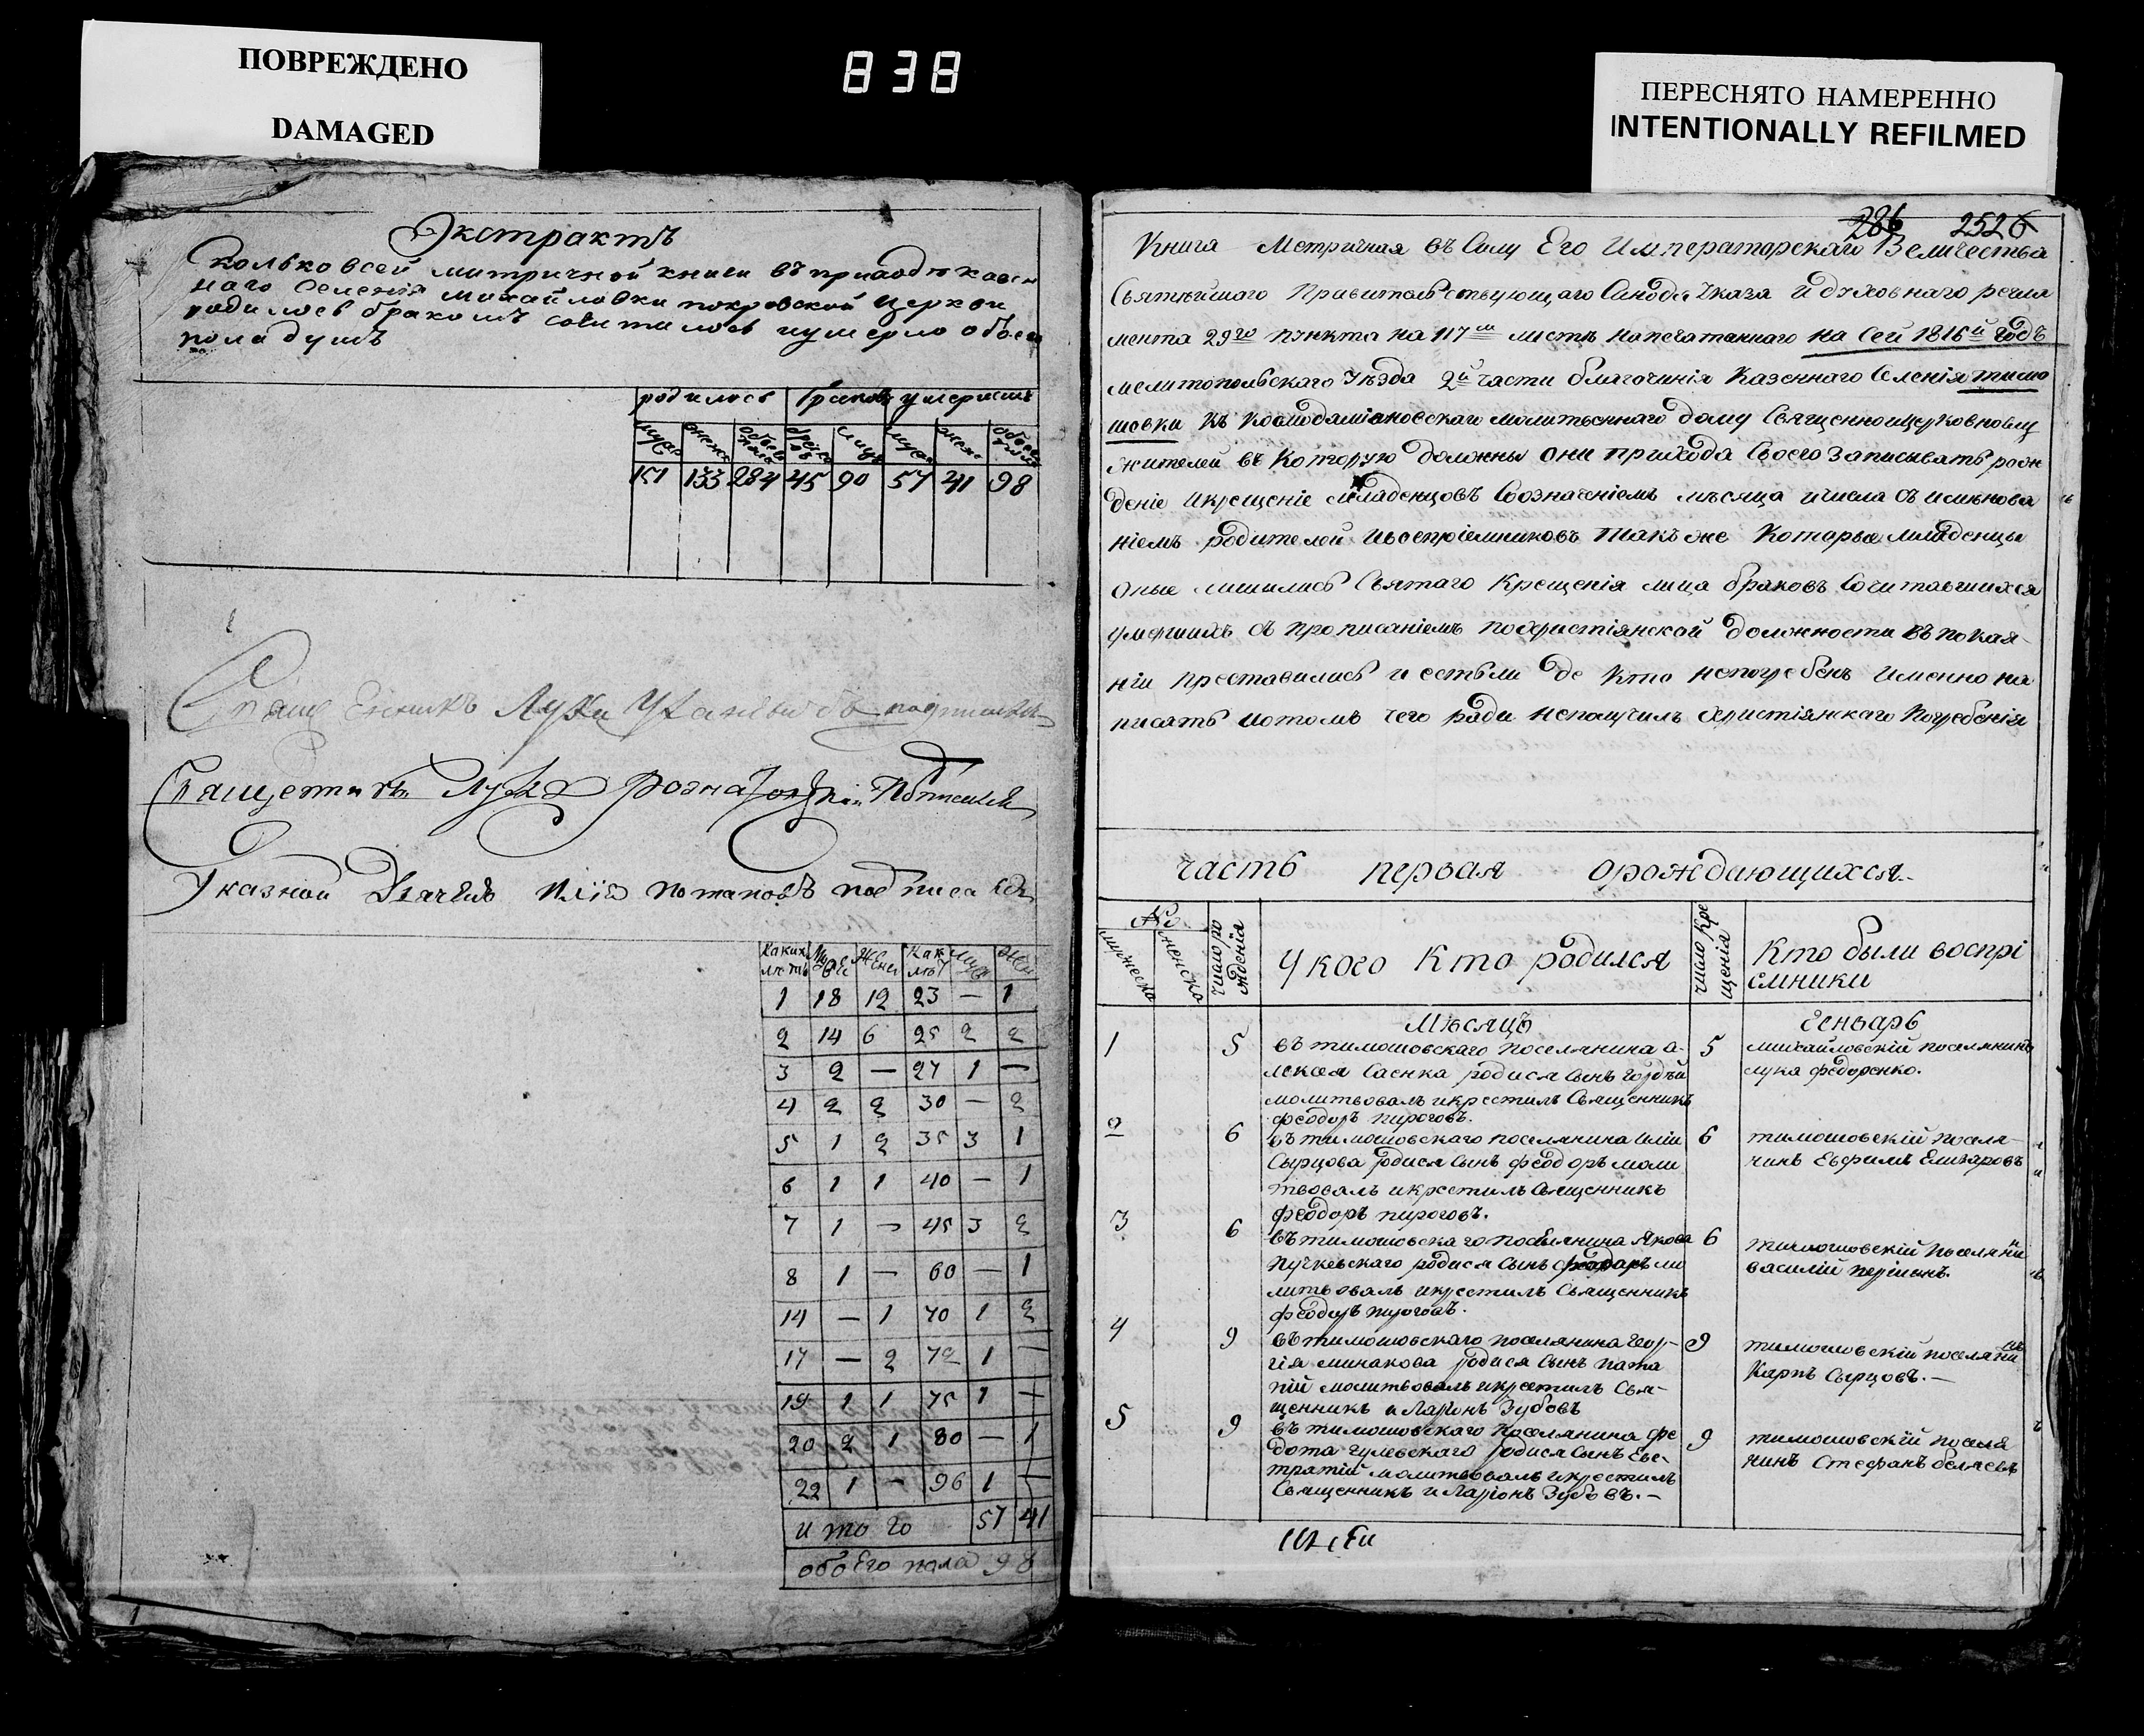 ПОВРЕЖДЕНО
DAMAGED
838
ПЕРЕСНЯТО НАМЕРЕННО
INTENTIONALLY REFILMED
Экстрактъ
Сколько всей митричной книги въ приходѣ казен
наго Селенія михайловки покровской Церкви
родилось бракомъ сочиталось иумерло обѣего
пола душъ
родилось браковъ умершихъ
муж женс обѣего пола браковъ лицъ муж женс обѣего пола
151 133 284 45 90 57 41 98
Священникъ Лука подписался
Священникъ Лука Подписался
Указной Дьячекъ Илія потаповъ подписался
Какихъ лѣтъ Муже Жен Как лѣт муж жен
1 18 12 23 — 1
2 14 6 25 2 2
3 2 — 27 1 —
4 2 2 30 — 2
5 1 2 35 3 1
6 1 1 40 — 1
7 1 — 45 3 2
8 1 — 60 — 1
14 — 1 70 1 2
17 — 2 72 1 —
19 1 1 75 1 —
20 2 1 80 — 1
22 1 — 96 1 —
итого 57 41
обоего пола 98
286 2526
Книга Метричная въ Силу Его Императорскаго Величества
Святѣйшаго Правительствующаго Синода Указа Идуховнаго регла
мента 29го пункта на 117м листѣ напечатаннаго на Сей 1816й Годъ
мелитопольскаго Уѣзда 2й части благочинія Казеннаго Селенія тимо
шовки Къ Космодаміановскаго молитвеннаго дому Священноицерковнослу
жителей въ Которую должны они прихода Своего Записывать рож
деніе икрещеніе младенцовъ Созначеніемъ мѣсяца ичисла съ имянова
ніемъ родителей ивоспріемниковъ такъ же Которые младенцы
оные лишились Святаго Крещенія лица браковъ Сочитавшихся
умершихъ съ прописаніемъ похристіянской должности въ покая-
ніи преставились и естьли де кто непогребенъ именно на
писать ютомъ чего ради неполучилъ христіянскаго погребенія
часть первая орождающихся
№
мужеска женска число рожденія У кого Кто родился число Крещенія Кто были воспрі
ємники
Мѣсяцъ Геньварь
1 5 въ тимошовскаго поселянина а- 5 михайловскій поселянинъ
лексея Саенка родися Сынъ Гордѣй лука федоренко.
молитвовалъ икрестилъ Священникъ
феодоръ пироговъ.
2 6 въ тимошовскаго поселянина Иліи 6 тимошовскій поселя-
Сырцова родися Сынъ феодоръ моли нинъ Евфимъ Елизаровъ
твовалъ икрестилъ Священникъ
феодоръ пироговъ.
3 6 въ тимошовскаго поселянина Якова 6 тимошовскій поселяни
пучкевскаго родися Сынъ феодоръ мо василій
литвовалъ икрестилъ Священникъ
феодоръ пироговъ.
4 9 въ тимошовскаго поселянина Геор- 9 тимошовскій поселянинъ
гія минакова родися Сынъ пата Карпъ Сырцовъ.—
пій молитвовалъ икрестилъ Свя-
щенникъ иларіонъ Зубовъ
5 9 въ тимошовскаго поселянина фе 9 тимошовскій поселя
дота гулевскаго родися Сынъ Евс- нинъ Стефанъ беляевъ
тратій молитвовалъ икрестилъ
Священникъ иларіонъ Зубовъ.—